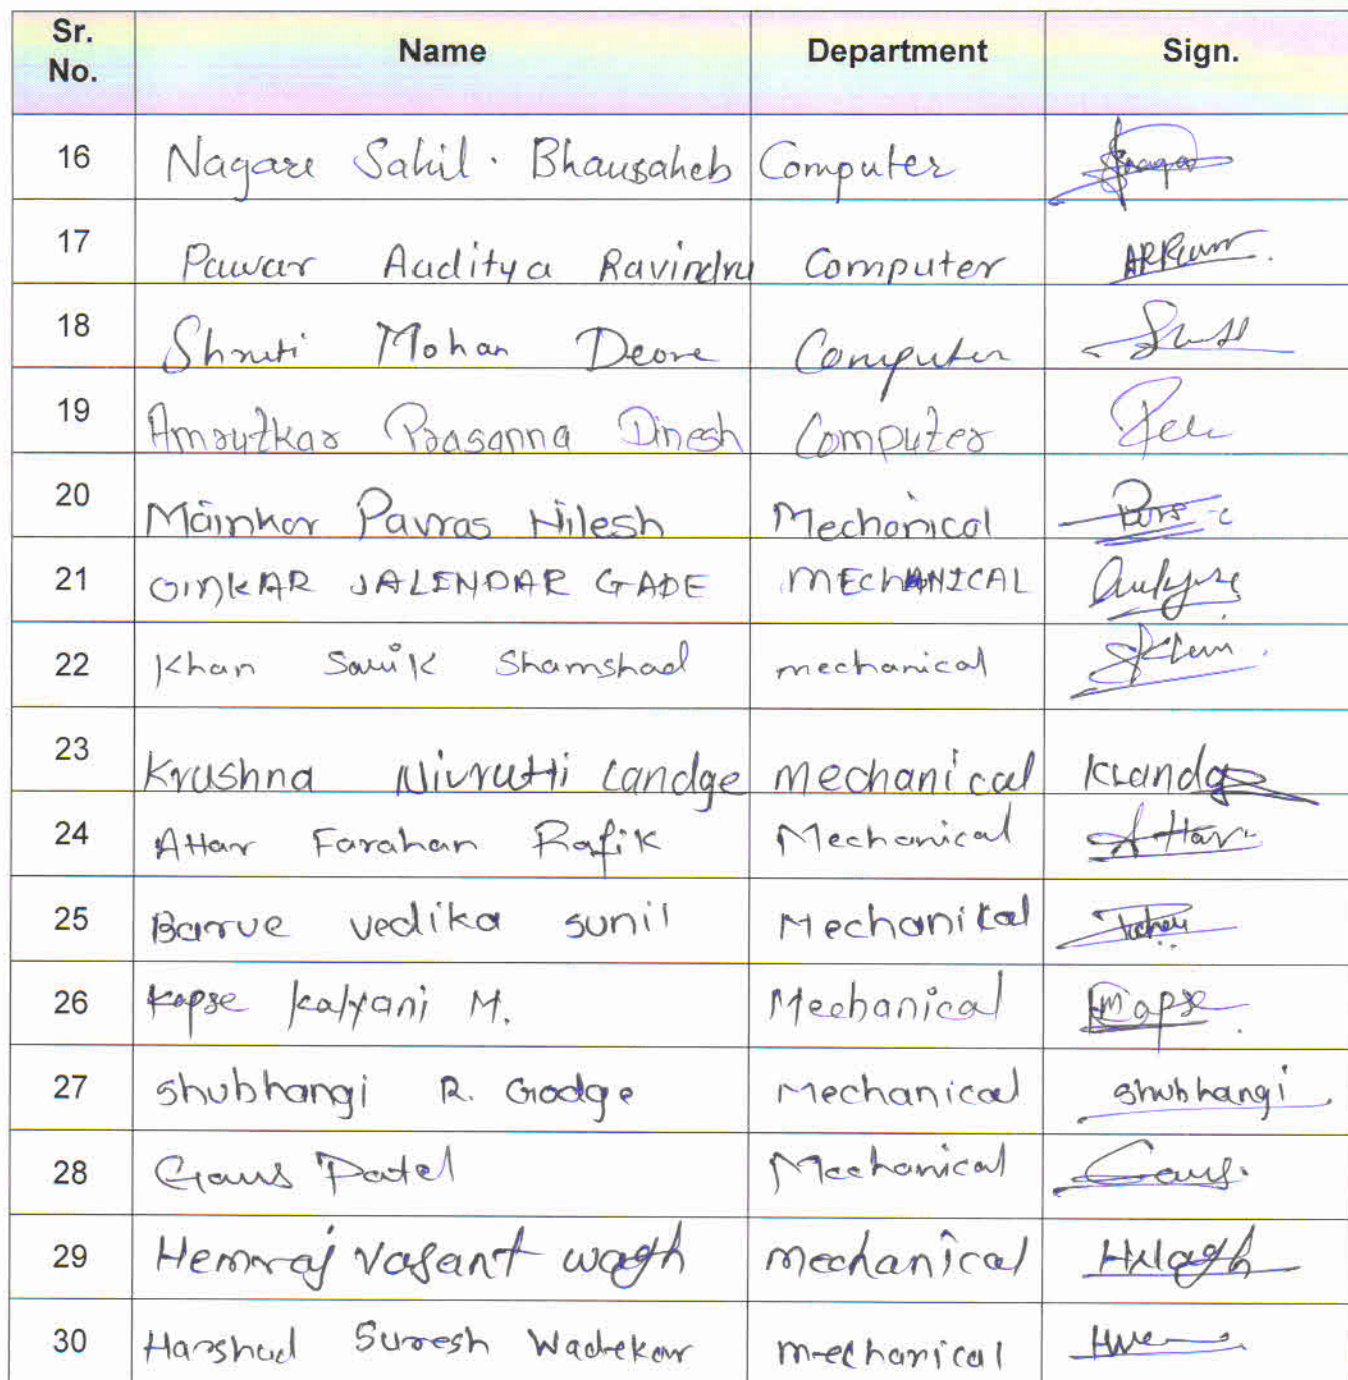 Sr. No. Name Department Sign.
16 Nagare Sahil. Bhausaheb Computer
17 Pawar Aaditya Ravindra Computer ARPawar.
18 Shruti Mohan Deore Computer
19 Amrutkar Prasanna Dinesh Computer
20 Mainkar Pavras Nilesh Mechanical
21 OMKAR JALENDAR GADE MECHANICAL
22 Khan Shamshad mechanical
23 Krushna Nivrutti Landge mechanical KLandge
24 Attar Farahan Rafik Mechanical Attar
25 Barve vedika sunil Mechanical
26 Kapse Kalyani M. Mechanical
27 Shubhangi R. Godge Mechanical Shubhangi
28 Gaus Patel Mechanical Gaus.
29 Hemraj Vasant wagh mechanical HWagh
30 Harshad Suresh Wadekar mechanical